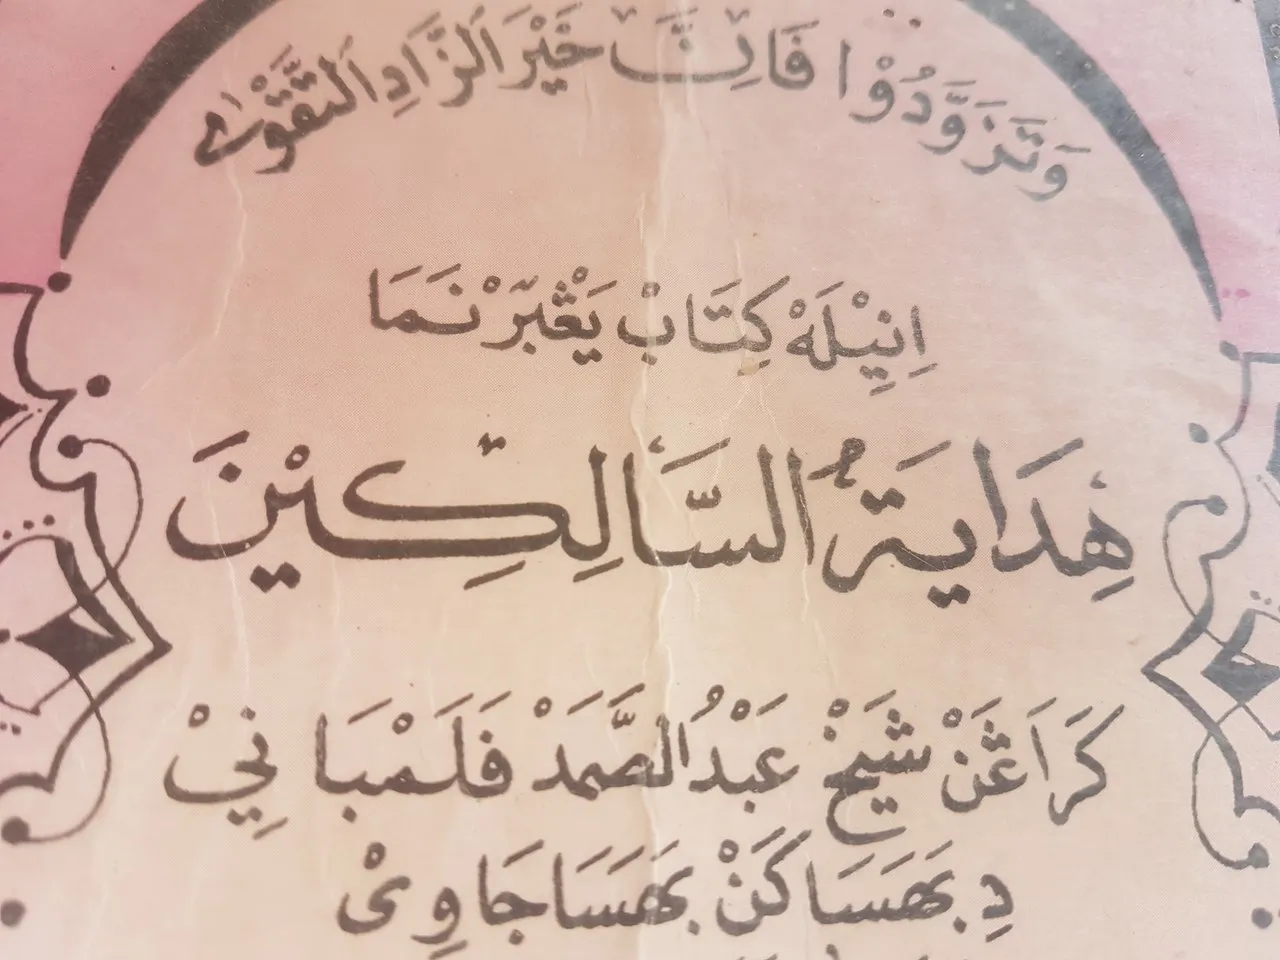 وَتَزَوَّدُوْا فَاِنَّ خَيْرَ الزَّادِ التَّقْوٰى
اِنِيْلَهْ كِتَابْ يَڠْبَرْنَمَا
هِدَايَةُ السَّالِكِيْنَ
كَرَاڠَنْ شَيْخْ عَبْدُ الصَّمَدْ فَلَمْبَانِيْ
دِبَهَسَاكَنْ بَهَسَا جَاوِيْ